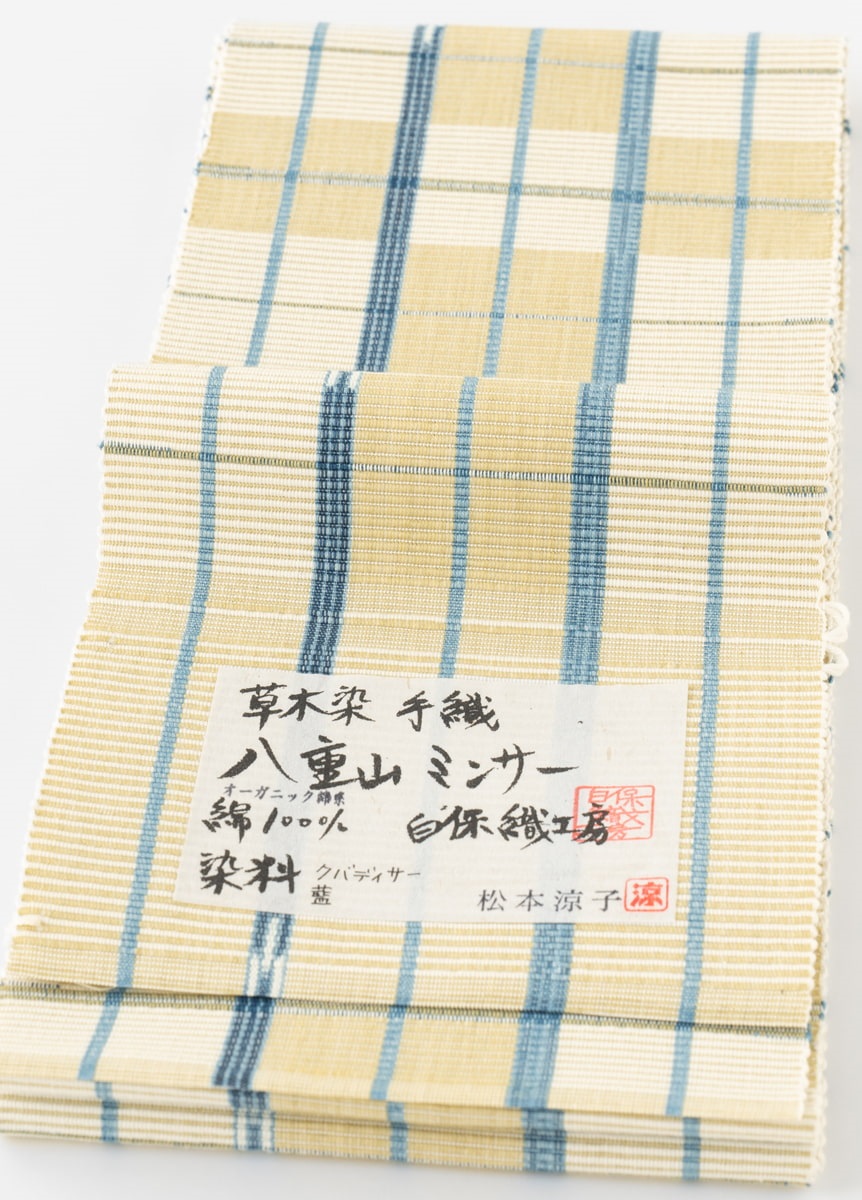 草木染 手織
八重山 ミンサー
オーガニック綿糸
綿100% 白保織工房
染料 クバディサー
藍
松本涼子 涼